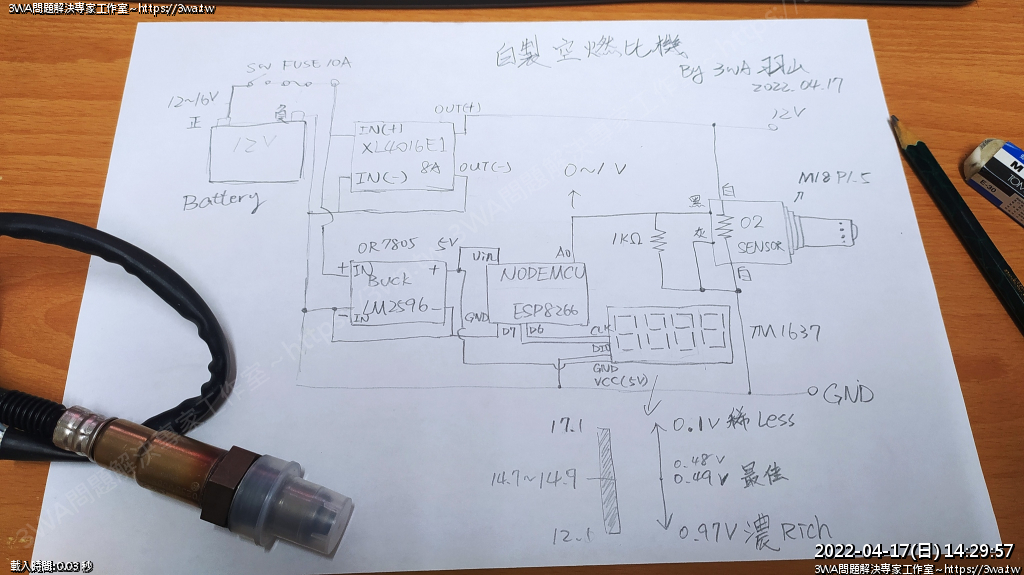 3WA問題解決専家工作室~https://3wa.tw
自製空燃比機
By 3WA 羽山
2022.04.17
SW FUSE 10A
12~16V
正
負
12V
Battery
OUT(+)
IN(+)
XL4016E1
8A
IN(-)
OUT(-)
12V
0~1V
白
黑
灰
白
π
M18 P1.5
O2
SENSOR
1KΩ
OR 7805
5V
+ IN
BUCK
+
LM2596
- IN
-
Vin
A0
NODEMCU
ESP8266
GND
D7
D6
CLK
DIO
GND
VCC(5V)
TM1637
GND
17.1
14.7~14.9
0.1V 稀 Less
0.48V
0.49V 最佳
0.97V 濃 Rich
MONO
E-30
2022-04-17(日) 14:29:57
載入時間:0.03 秒
3WA問題解決専家工作室~https://3wa.tw